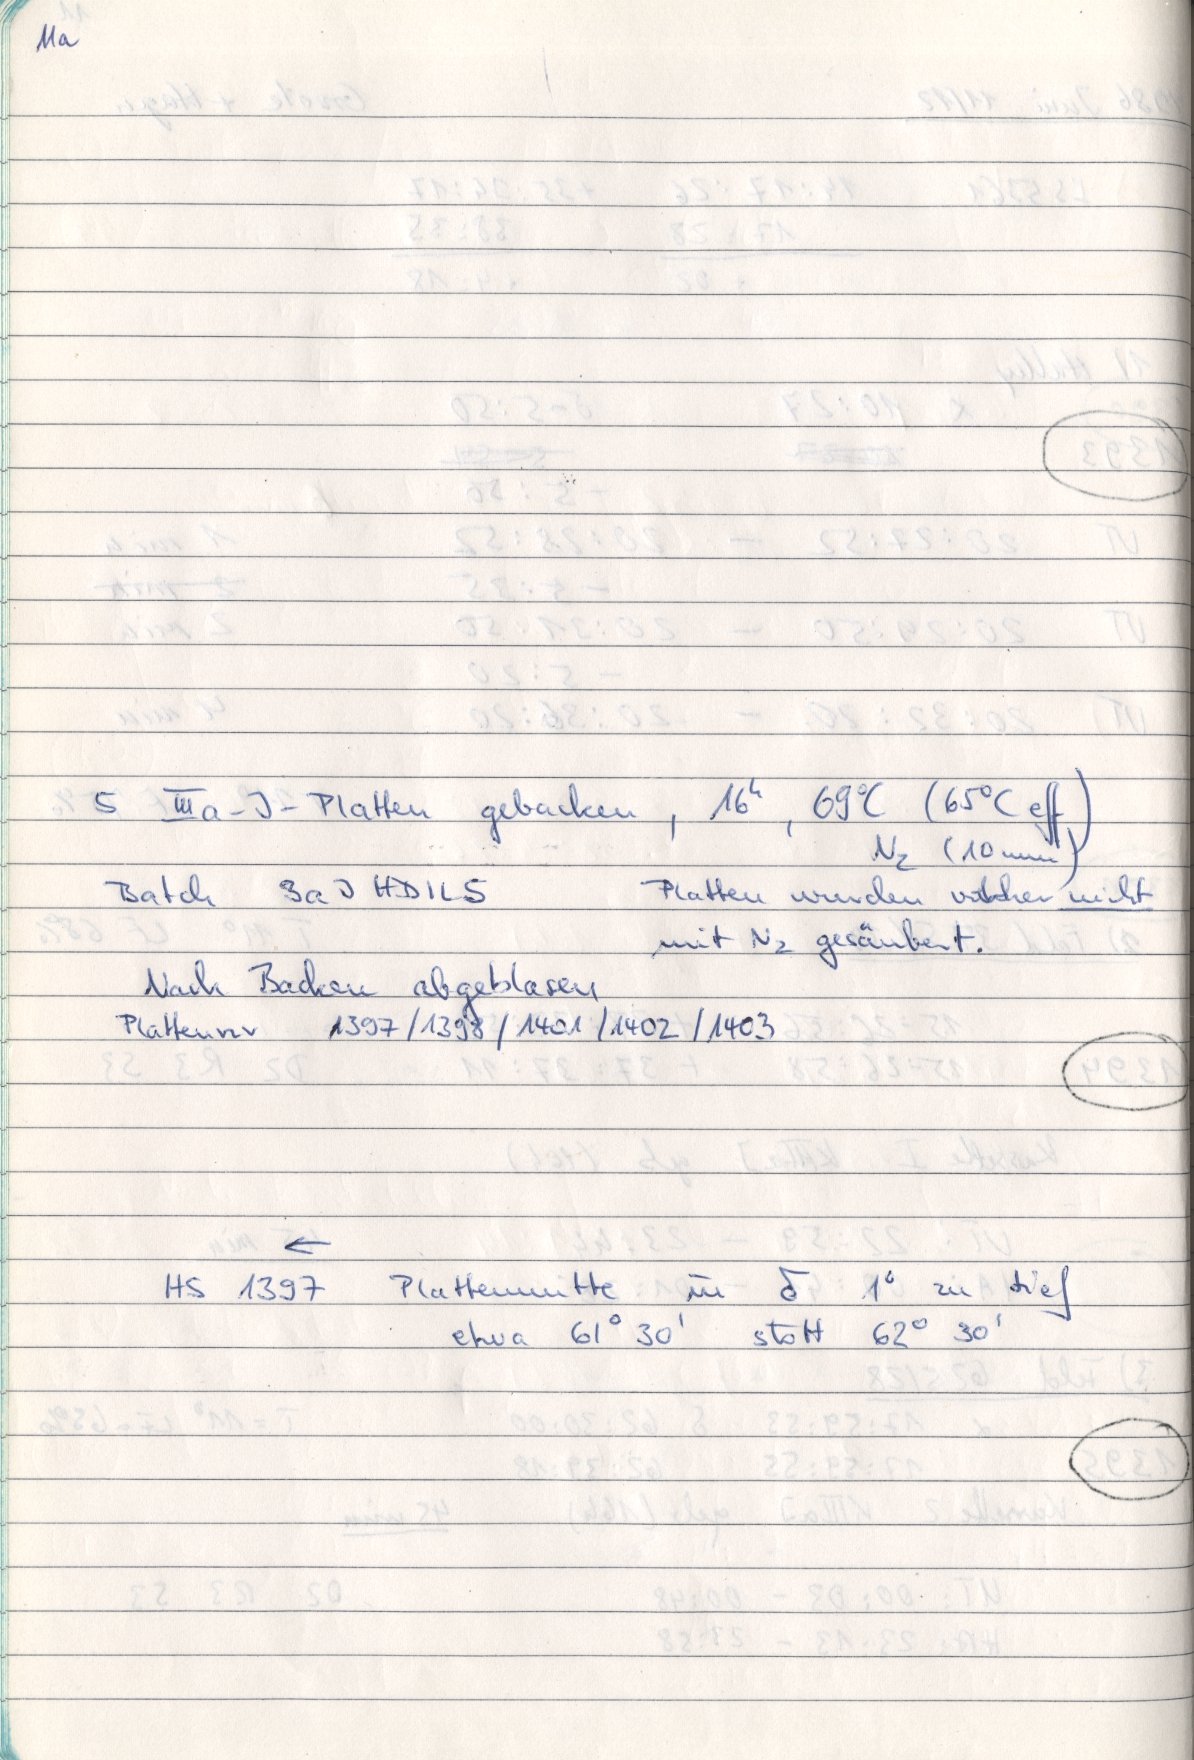 11a
5 IIIa-J-Platten gebacken, 16h, 69°C (65°C eff)
N2 (10mm)
Batch 3aJ HD1L5 Platten wurden vorher nicht
mit N2 gesäubert.
Nach Backen abgeblasen
Plattennr 1397/1398/1401/1402/1403
←
HS 1397 Plattenmitte in δ 1° zu tief
etwa 61° 30' statt 62° 30'